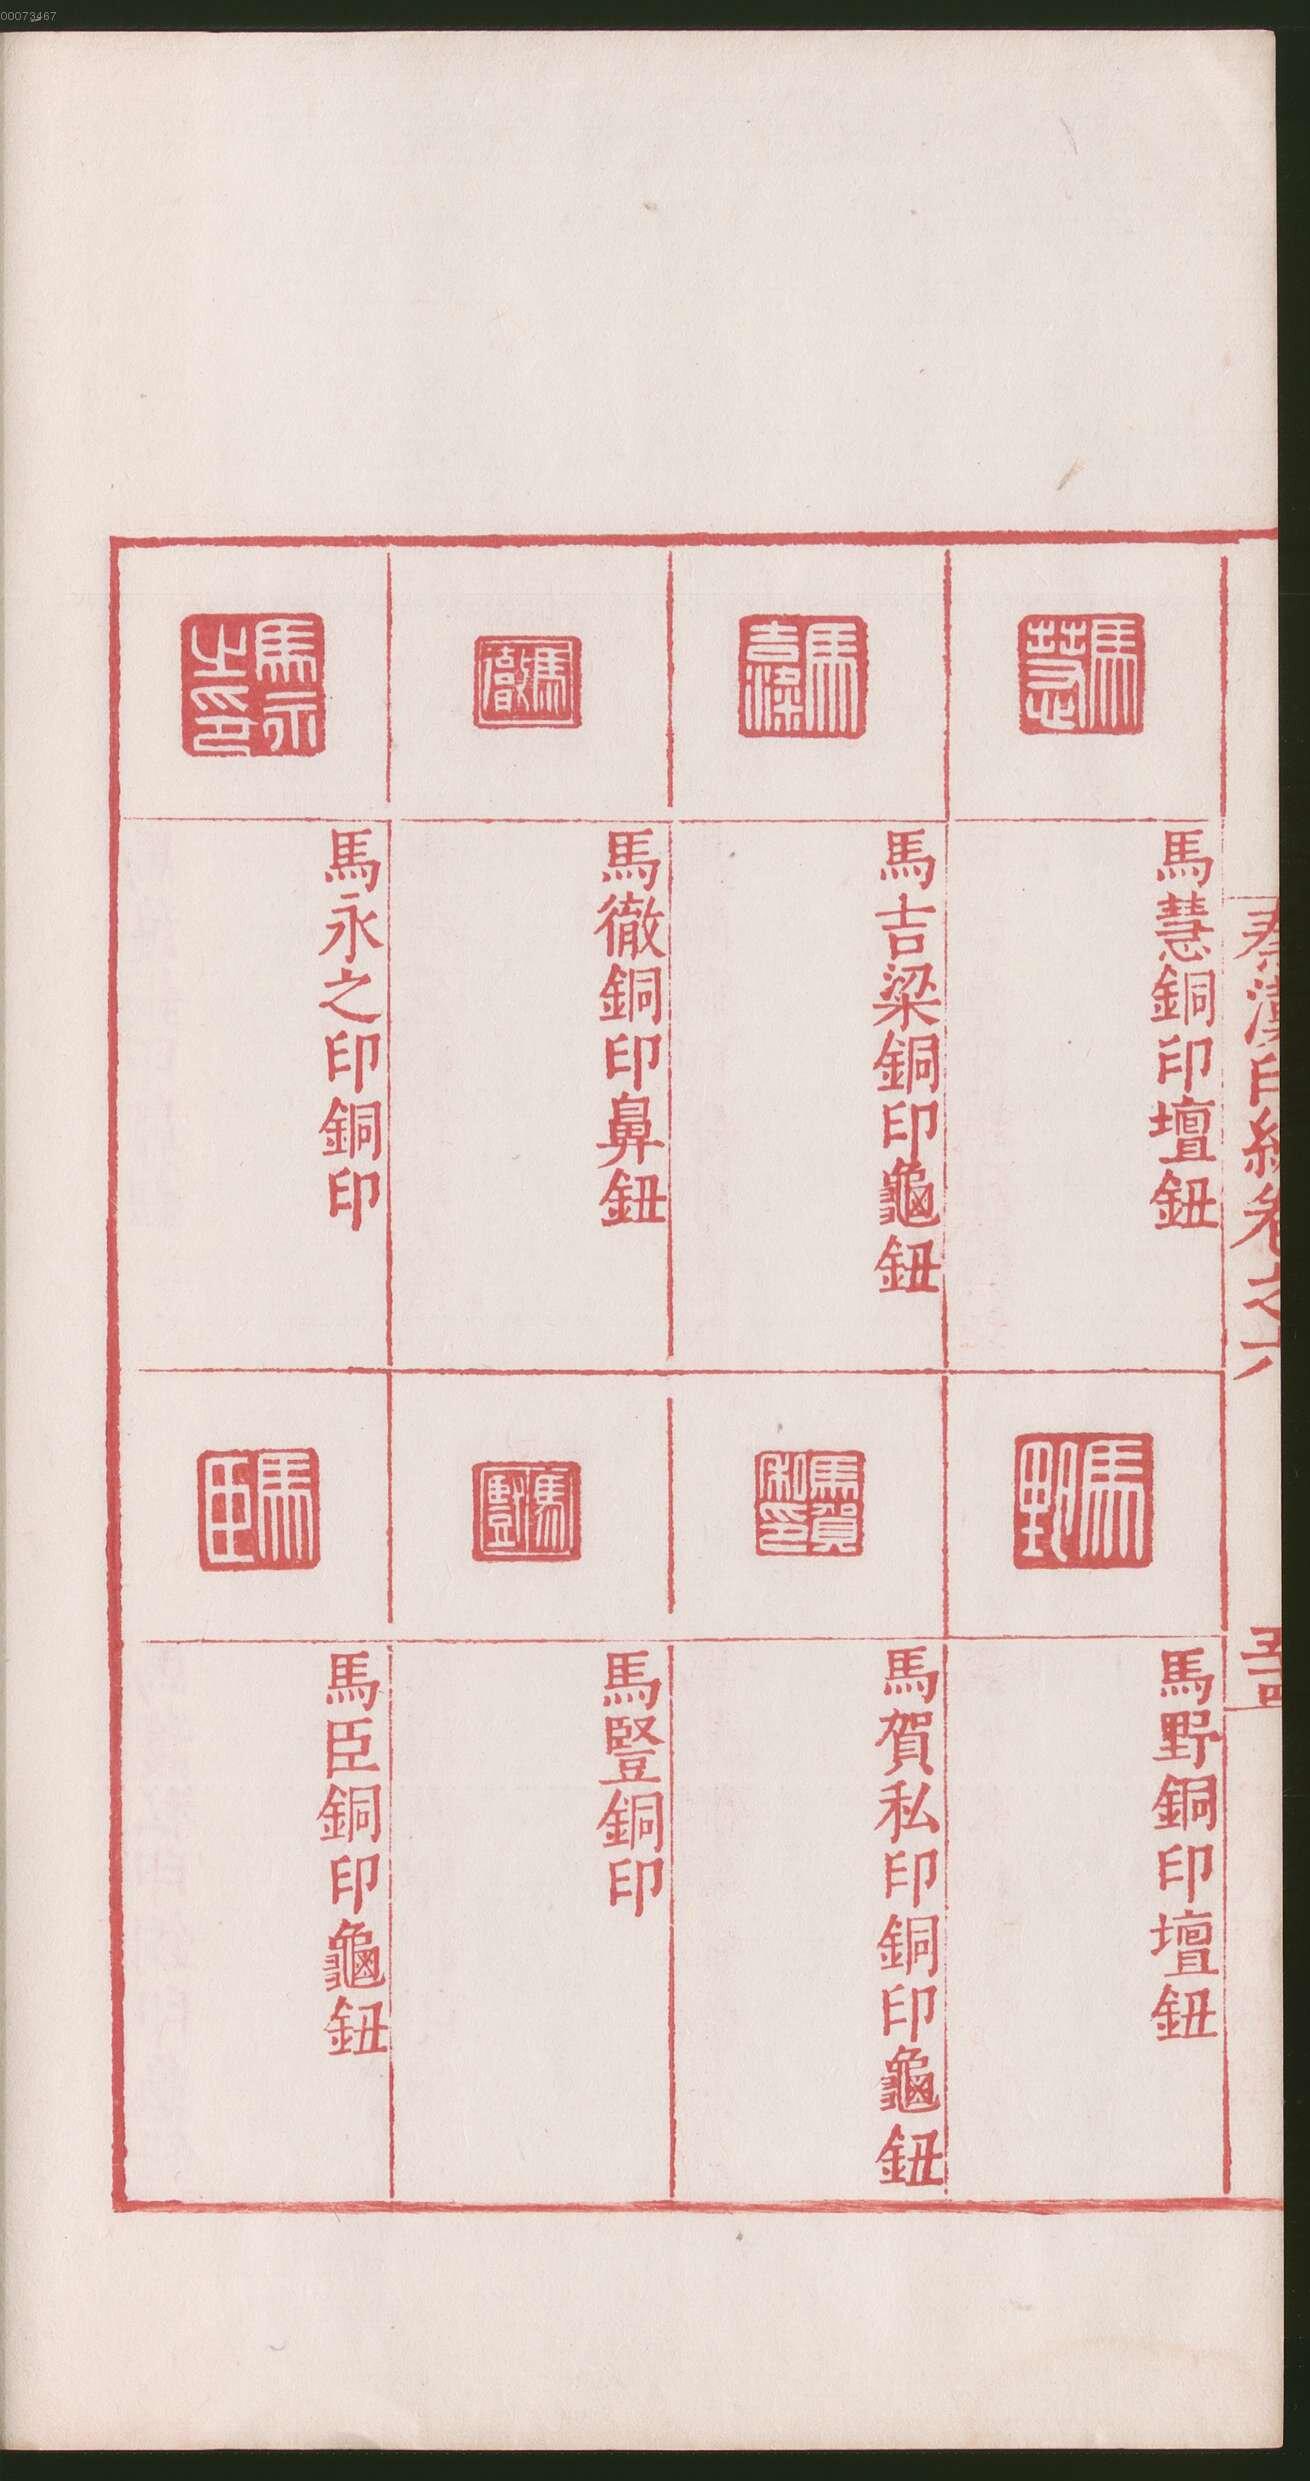 00073467
秦漢印統卷之六
五十四
馬慧
馬慧銅印壇鈕
馬吉梁
馬吉梁銅印龜鈕
馬徹
馬徹銅印鼻鈕
馬永之印
馬永之印銅印
馬野
馬野銅印壇鈕
馬賀私印
馬賀私印銅印龜鈕
馬豎
馬豎銅印
馬臣
馬臣銅印龜鈕